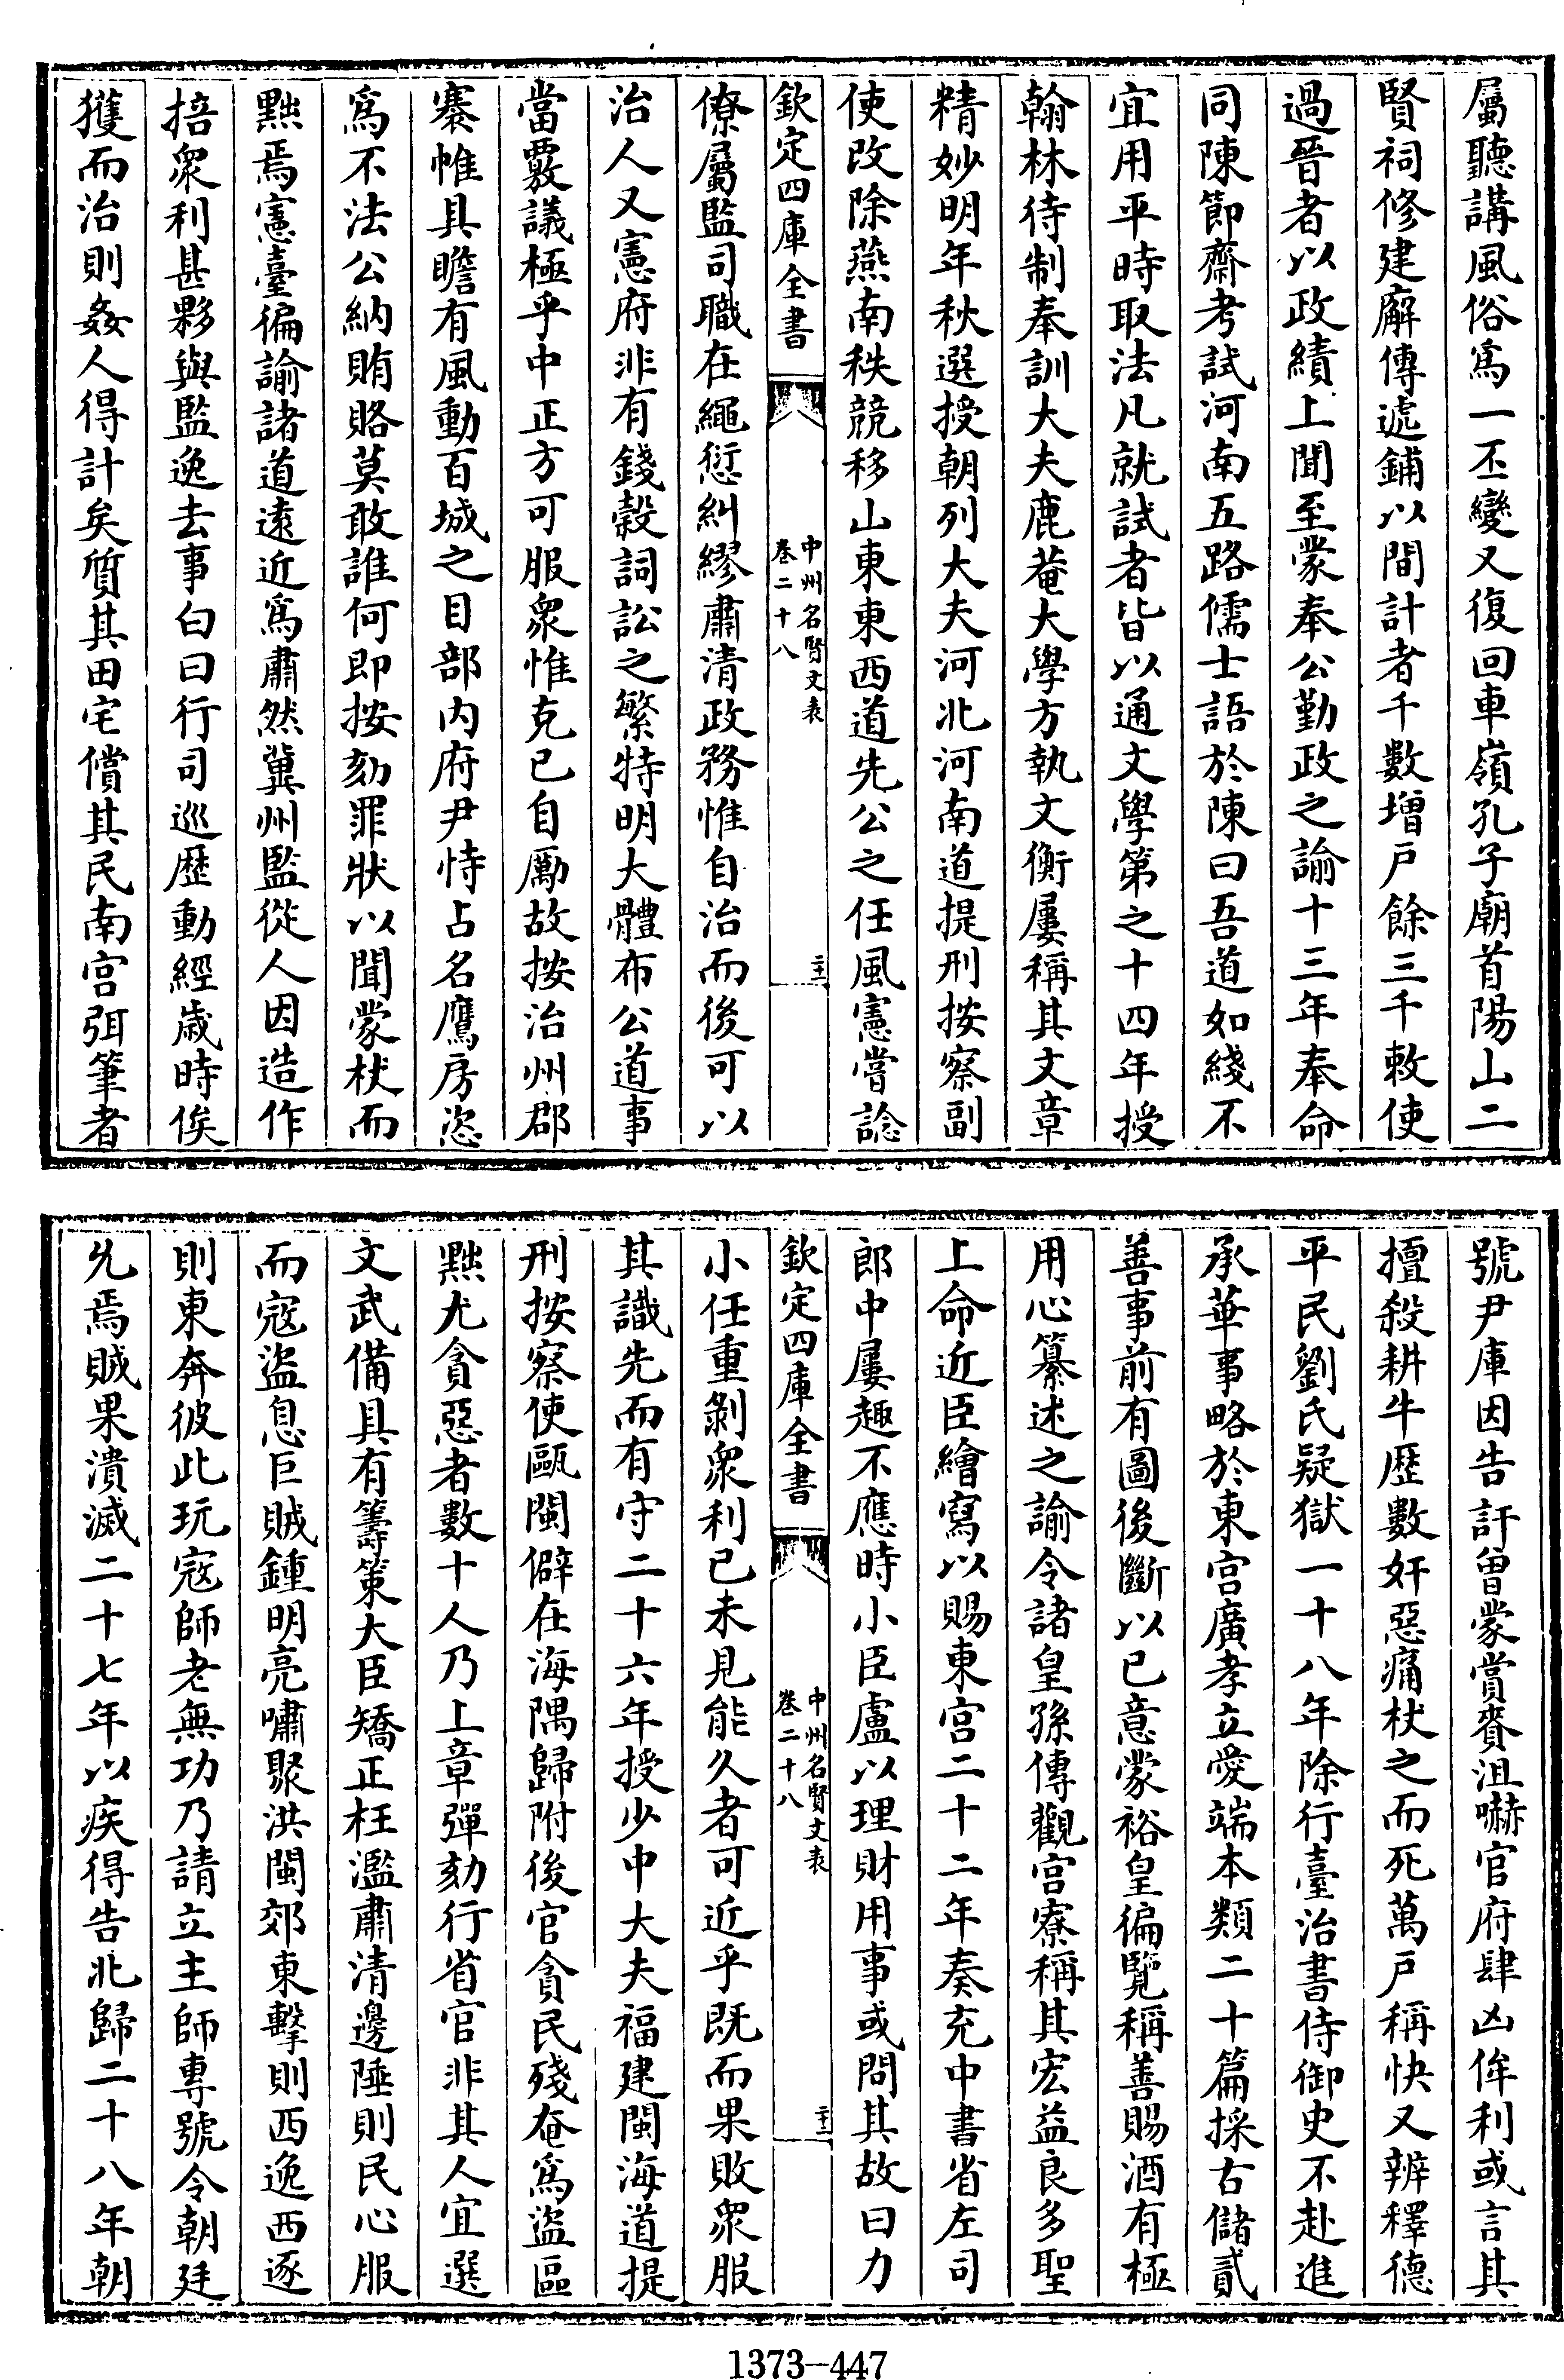 屬聽講風俗爲一丕變又復回車嶺孔子廟首陽山二
賢祠修建廨傳遞鋪以間計者千數增戸餘三千敕使
過晉者以政績上聞至蒙奉公勤政之諭十三年奉命
同陳節齋考試河南五路儒士語於陳曰吾道如綫不
宜用平時取法凡就試者皆以通文學第之十四年授
翰林待制奉訓大夫鹿菴大學方執文衡屢稱其文章
精妙明年秋選授朝列大夫河北河南道提刑按察副
使改除燕南秩競移山東東西道先公之任風憲嘗諗
欽定四庫全書
中州名賢文表
卷二十八
二十一
僚屬監司職在繩愆糾繆肅清政務惟自治而後可以
治人又憲府非有錢穀詞訟之繁特明大體布公道事
當覈議極乎中正方可服衆惟克已自勵故按治州郡
褰帷具瞻有風動百城之目部内府尹恃占名鷹房恣
爲不法公納賄賂莫敢誰何即按劾罪狀以聞蒙杖而
黜焉憲臺徧諭諸道遠近爲肅然冀州監從人因造作
掊衆利甚夥與監逸去事白曰行司巡歴動經歲時俟
獲而治則姦人得計矣質其田宅償其民南宫弭筆者
號尹庫因告訐曽蒙賞賚沮嚇官府肆凶侔利或言其
擅殺耕牛歴數奸惡痛杖之而死萬戸稱快又辨釋德
平民劉氏疑獄一十八年除行臺治書侍御史不赴進
承華事略於東宫廣孝立愛端本類二十篇採古儲貳
善事前有圖後斷以已意蒙裕皇徧覽稱善賜酒有極
用心纂述之諭令諸皇孫傳觀宫寮稱其宏益良多聖
上命近臣繪寫以賜東宫二十二年奏充中書省左司
郎中屢趣不應時小臣盧以理財用事或問其故曰力
欽定四庫全書
中州名賢文表
卷二十八
二十二
小任重剝衆利已未見能久者可近乎既而果敗衆服
其識先而有守二十六年授少中大夫福建閩海道提
刑按察使甌閩僻在海隅歸附後官貪民殘奄爲盜區
黜尤貪惡者數十人乃上章彈劾行省官非其人宜選
文武備具有籌策大臣矯正枉濫肅清邊陲則民心服
而寇盜息巨賊鍾明亮嘯聚洪閩郊東擊則西逸西逐
則東奔彼此玩寇師老無功乃請立主帥專號令朝廷
允焉賊果潰滅二十七年以疾得告北歸二十八年朝
1373-447